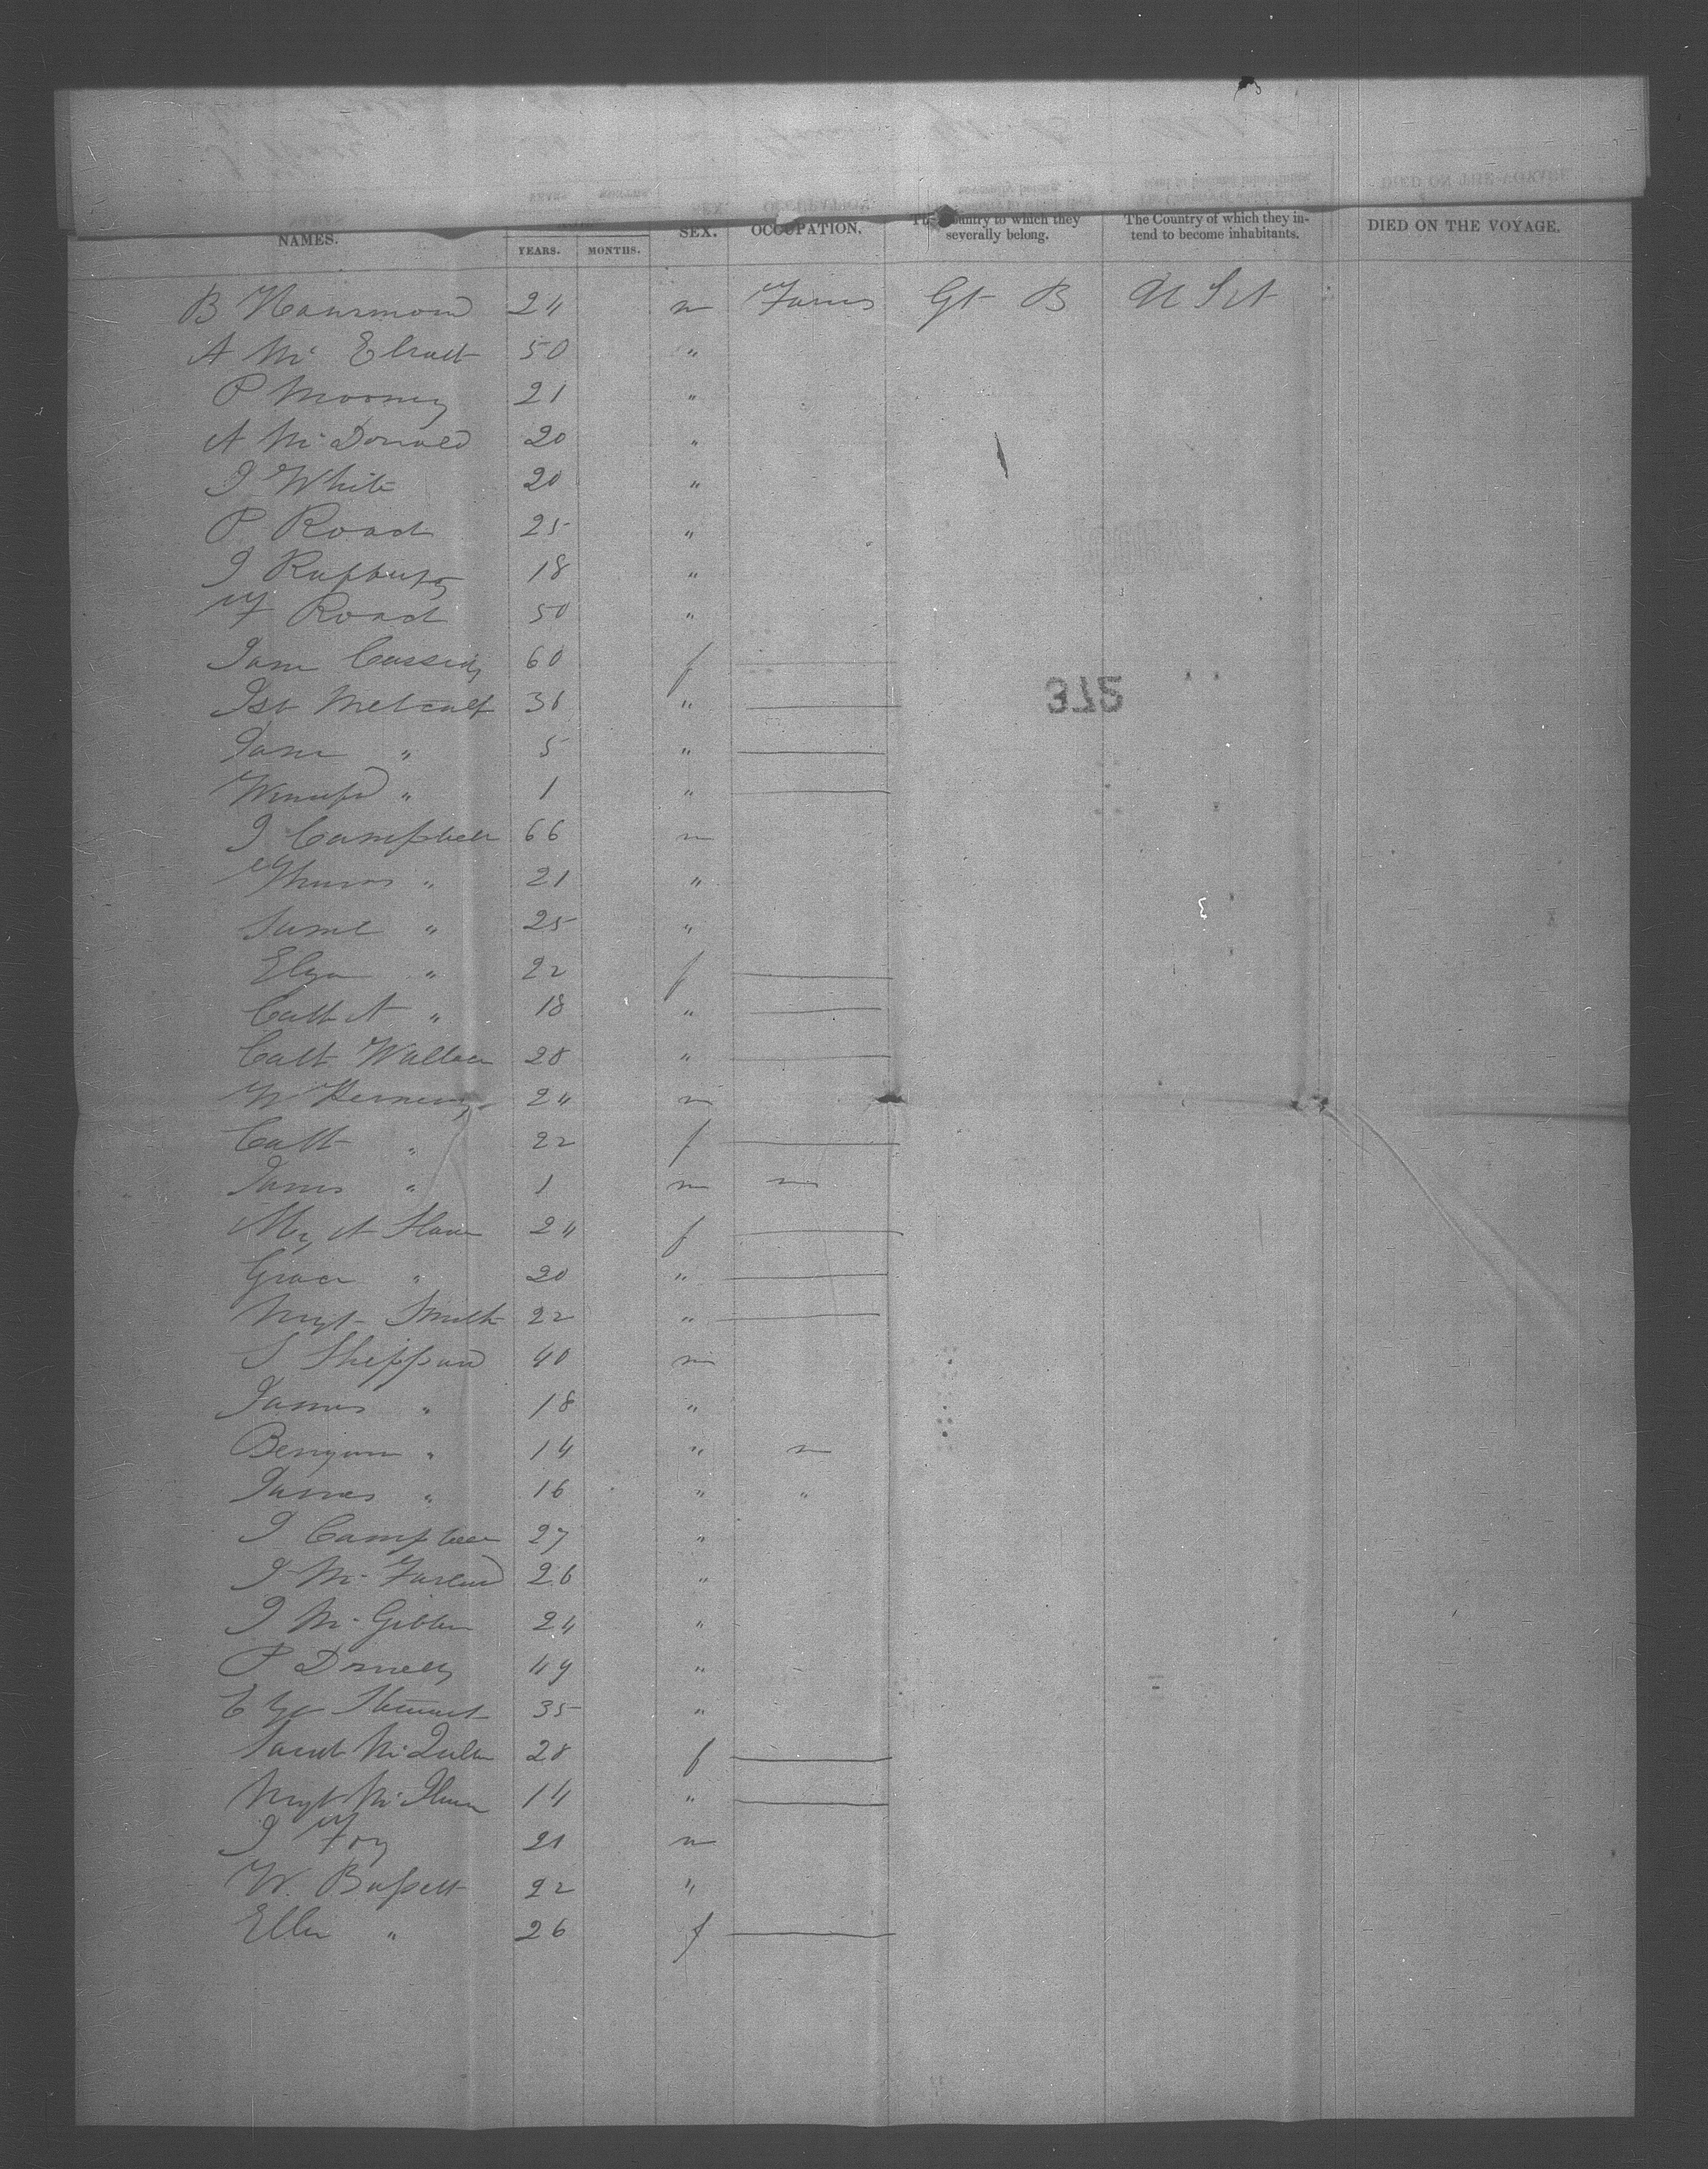 NAMES. YEARS. MONTHS. SEX. OCCUPATION. The Country to which they severally belong. The Country of which they in-tend to become inhabitants. DIED ON THE VOYAGE.
B 24 m Gt B U St
A Mc 50 "
P Mooney 21 "
A McDonald 20 "
J White 20 "
P Road 25 "
J 18 "
F Road 50 "
Jane Cassidy 60 f
Isb Metcalf 36 "
Jane " 5 "
Winifd " 1 "
J Campbell 66 m
Thomas " 21 "
Saml " 25 "
Eliza " 22 f
Cath A " 18 "
Cath Wallace 28 "
W 24 m
Cath " 22 f
James " 1 m
My A 24 f
Grace " 20 "
Mgt Smith 22 "
S Sheppard 40 m
James " 18 "
Benjamin " 14 "
James " 16 " "
J Campbell 27 "
J McFarland 26 "
J McGibbin 24 "
P Donnelly 49 "
Stewart 35 "
Sarah 28 f
Mgt 14 "
J Foy 21 m
W. Bassett 22 "
Ellen " 26 f
372